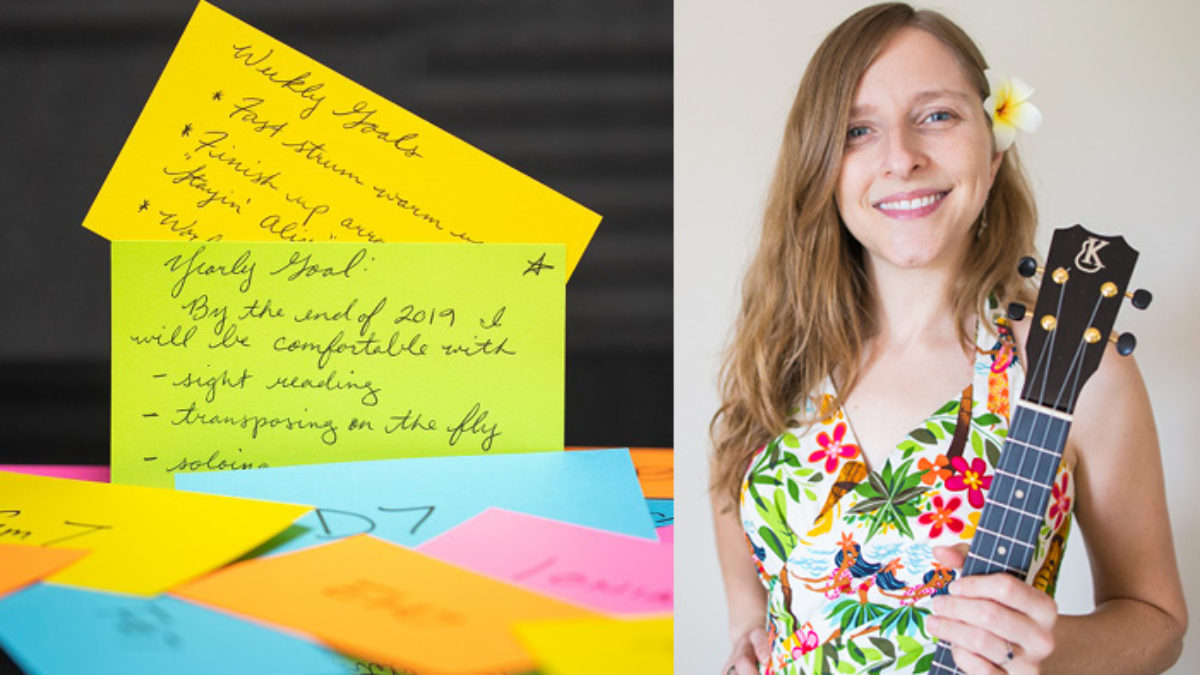 Weekly Goals
* Fast strum warm u
* Finish up arra
"Stayin' Aliv
*
Yearly Goal: ☆
By the end of 2019 I
will be comfortable with
- sight reading
- transposing on the fly
- soloing
D7
m 7
K